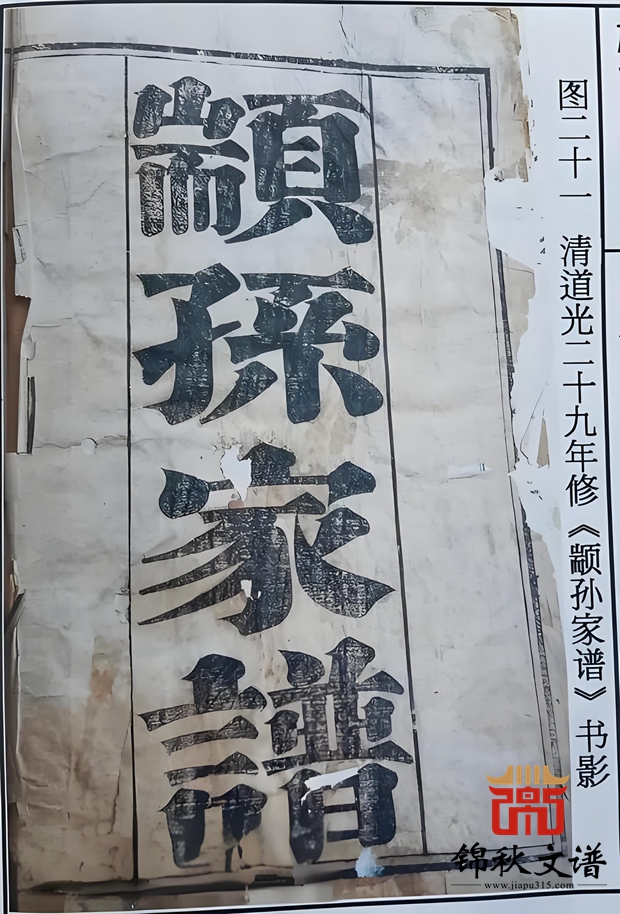 顓孫家譜
图二十一 清道光二十九年修《颛孙家谱》书影
锦秋文谱
www.jiapu315.com